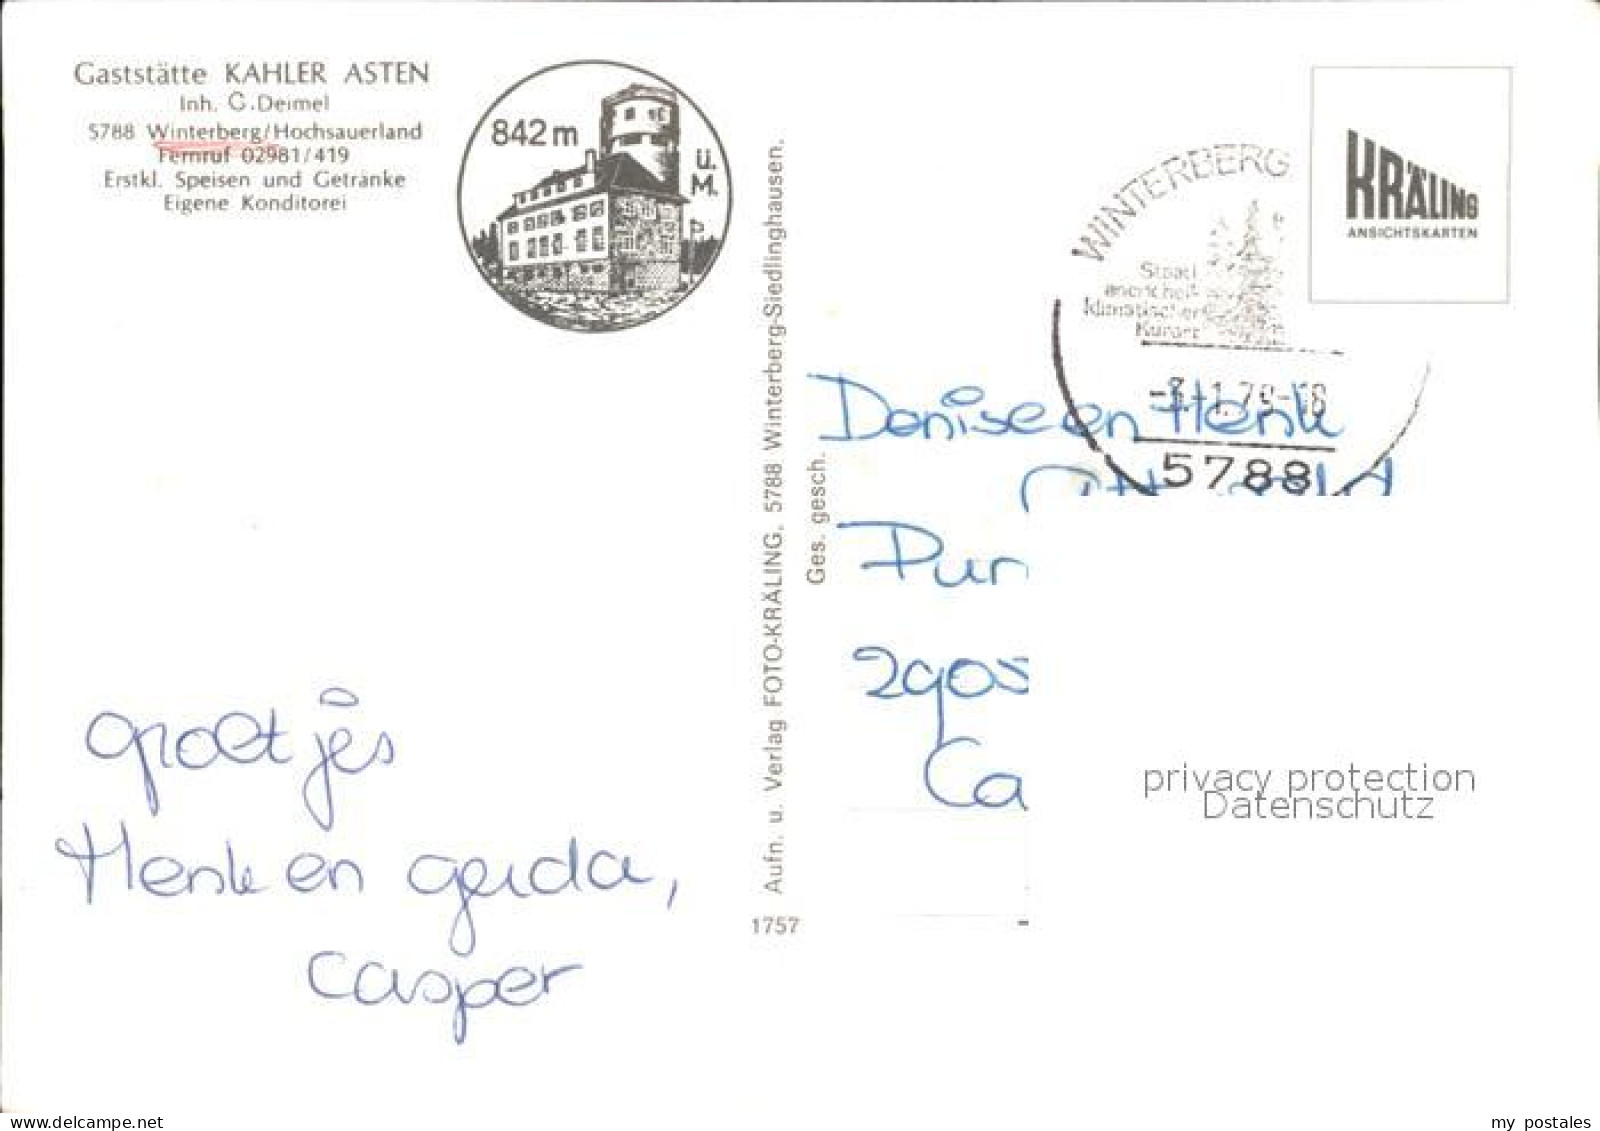 Gaststätte KAHLER ASTEN
Inh. G. Deimel
5788 Winterberg/Hochsauerland
Fernruf 02981/419
Erstkl. Speisen und Getränke
Eigene Konditorei
842 m
ü.
M.
groetjes
Henk en gerda,
casper
Aufn. u. Verlag FOTO-KRÄLING, 5788 Winterberg-Siedlinghausen.
Ges. gesch.
1757
WINTERBERG
Staatl
anerkchei
klimatischer
Kurort
5788
KRÄLING
ANSICHTSKARTEN
Denise en Henk
Pur
2905
Ca
privacy protection
Datenschutz
delcampe.net
my_postales